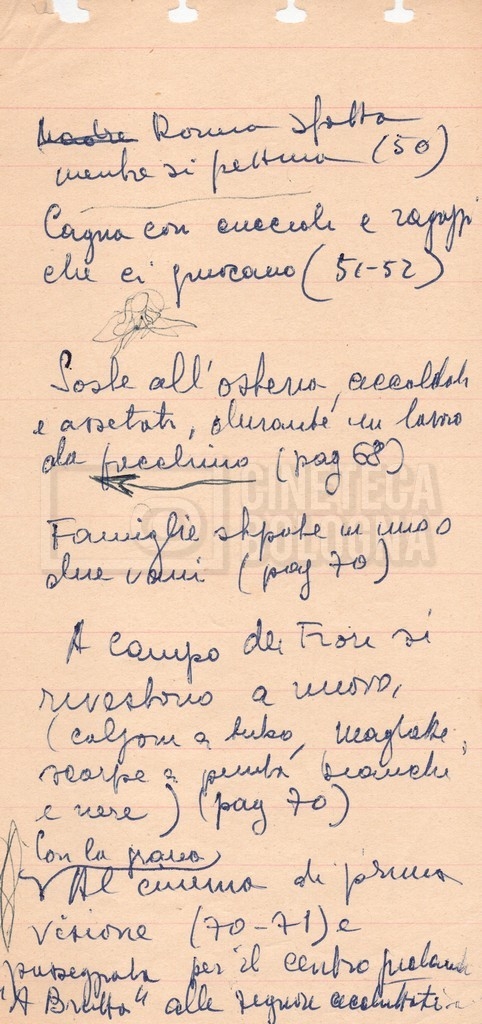 Madre Donna sfatta
mentre si pettina (50)
Cagna con cuccioli e ragazzi
che ci giocano (51-52)
Soste all'osteria, accaldati
e assetati, durante un lavoro
da facchino (pag 68)
CINETECA
BOLOGNA
Famiglie stipate in uno o
due vani (pag 70)
A Campo dei Fiori si
rivestono a nuovo,
(calzoni a tubo, magliette,
scarpe a punta bianche
e nere) (pag 70)
Con la grana
Al cinema di prima
visione (70-71) e
passeggiata per il centro
alle signore